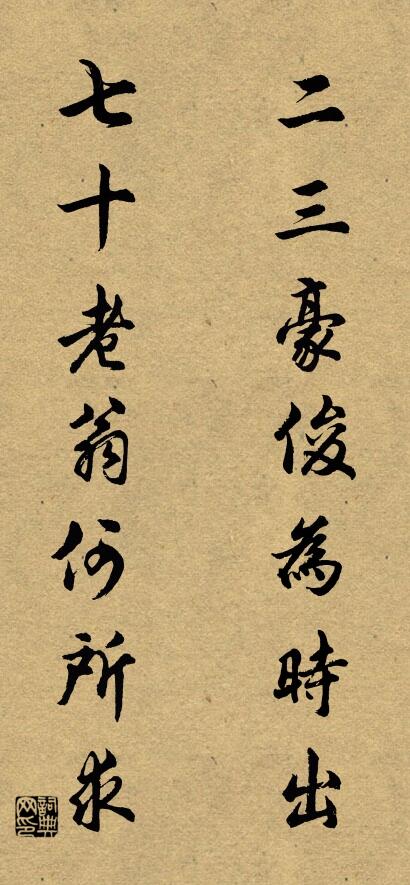 二三豪俊為時出
七十老翁何所求
詞典
网印